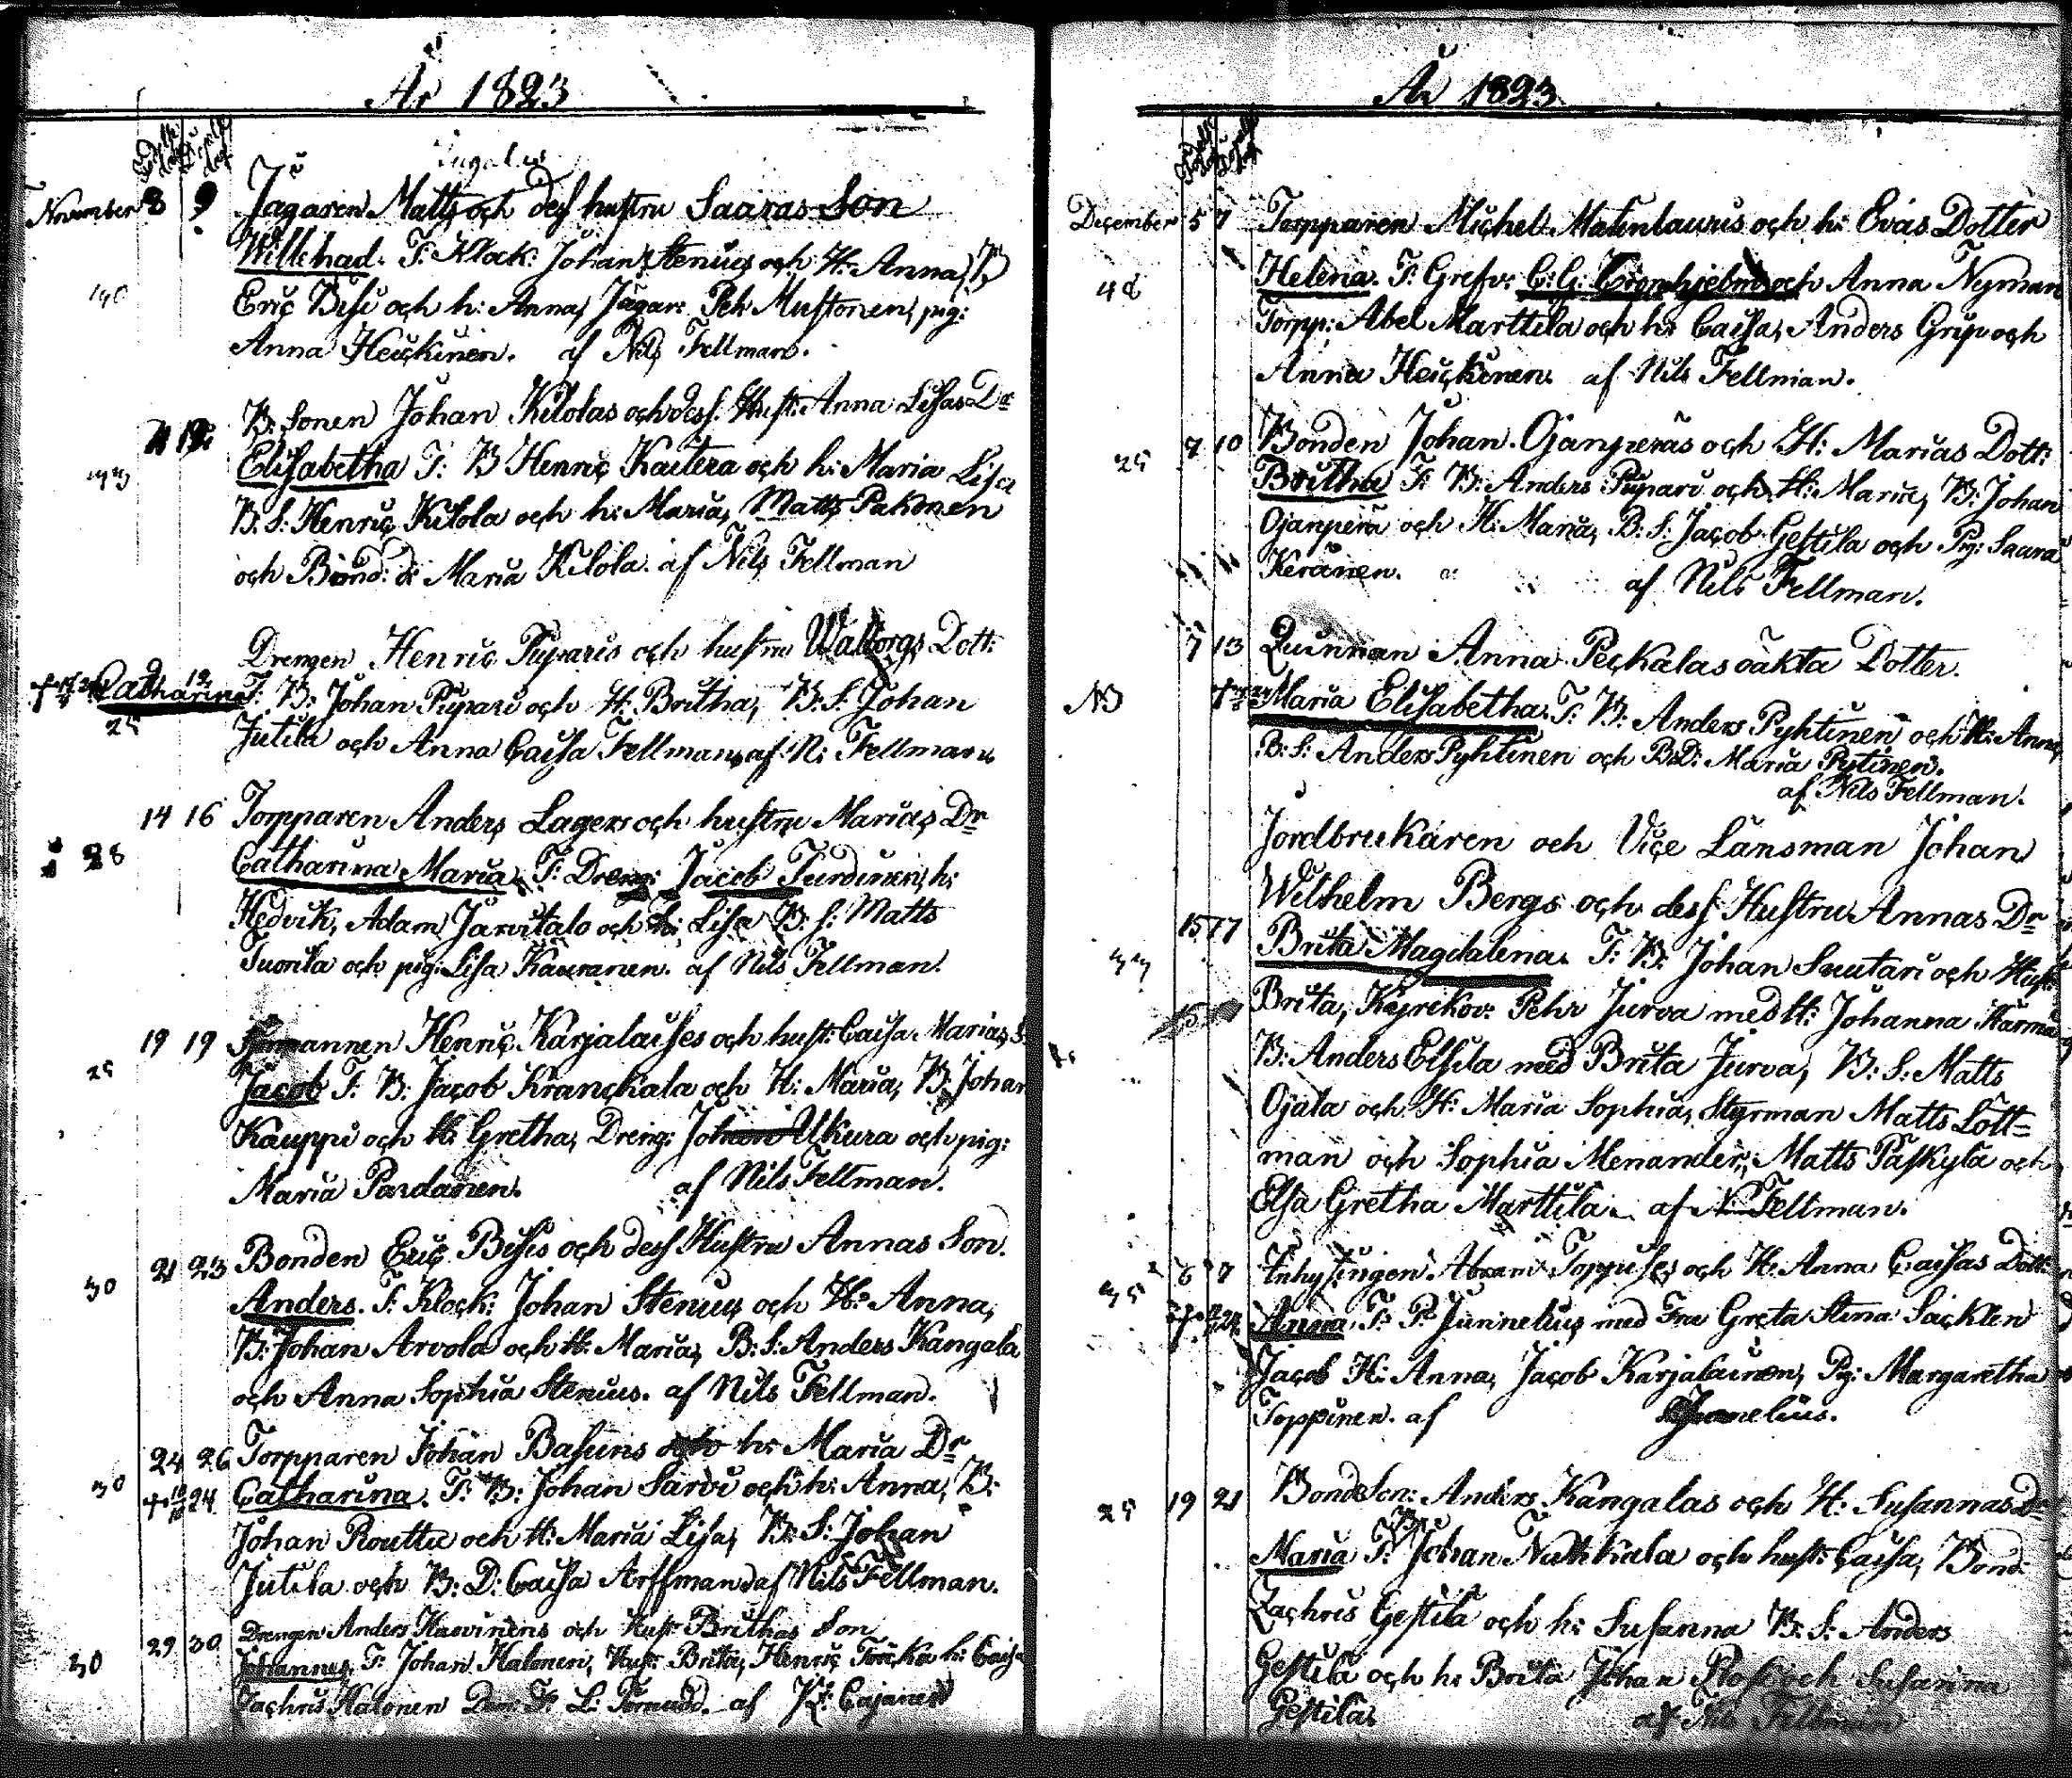 År 1823
Födelse dag Döpelse dag
November 8 9 Jägaren Matts och dess hustru Saaras Son
Willehad. F: Klock: Johan Stenius och H: Anna, B
Eric Bisi och h: Anna, Jägar: Pehr Mustonen, pig:
Anna Heickinen. af Nils Fellman.
B: Sonen Johan Kilolas och dess Hust: Anna Lisas Dr
Elisabetha F: B Henric Kaitera och h: Maria Lisa
B: S: Henric Kilola och h: Maria, Matts Pakonen
och Bond: d: Maria Kilola. af Nils Fellman
Drengen Henric Puparis och hustru Walborgs Dott:
9 12
Catharina F: B: Johan Pupari och H: Britha, B: S: Johan
25 Jutila och Anna Caisa Fellman, af N: Fellman
14 16 Torpparen Anders Lagers och hustru Marias Dr
28 Catharina Maria. F: Dreng: Jacob Turdinen, h:
Hedvik, Adam Jarvitalo och h: Lisa B: S: Matts
Tuorila och pig: Lisa Kauranen. af Nils Fellman.
19 19 Henric Karjalaises och hust: Caisa Marias S:
25 Jacob F: B: Jacob Kranckala och H: Maria, B: Johan
Kauppi och H: Gretha, Dreng: Johan Ukura och pig:
Maria Pardanen. af Nils Fellman.
21 23 Bonden Eric Bisis och dess Hustru Annas Son.
30 Anders. F: Klock: Johan Stenius och H: Anna,
B: Johan Arvola och H: Maria, B: S: Anders Kangala
och Anna Sophia Stenius. af Nils Fellman.
24 26 Torpparen Johan Basuns och h: Maria Dr
30 Catharina. F: B: Johan Sarvi och h: Anna, B:
Johan Routtu och H: Maria Lisa, B: S: Johan
Jutila och B: D: Caisa Arffman af Nils Fellman.
29 30 Drengen Anders Havinens och Hust: Brithas Son
30 Johannes, F: Johan Halonen, Hust: Brita, Henric Töräkä h: Caisa
Zachris Halonen Dem: F: L: Tornudd. af K: Cajanus
År 1823
December 5 7 Torpparen Michel Matinlauris och h: Evas Dotter
Helena. F: Grefv: C: G: och Anna Nyman
Torpp: Abel Marttila och h: Caisa, Anders Grip och
Anna Heickinen. af Nils Fellman.
7 10 Bonden Johan Ojanperäs och H: Marias Dott:
25 Britha F: B: Anders Pupari och H: Maria, B: Johan
Ojanperä och H: Maria, B: S: Jacob Gestila och Pig: Saara
Keränen. af Nils Fellman.
7 13 Quinnan Anna Peckalas oäkta Dotter.
NB Maria Elisabetha. F: B: Anders Pyhtinen och H: Anna,
B: S: Anders Pyhtinen och B: D: Maria Pytinen.
af Nils Fellman.
Jordbrukaren och Vice Länsman Johan
Wilhelm Bergs och dess Hustru Annas Dr
15 17 Brita Magdalena. F: B: Johan Suutari och Hust:
Brita, Kyrkov: Pehr Jurva med H: Johanna
B: Anders Elsila med Brita Jurva, B: S: Matts
Ojala och H: Maria Sophia, Styrman Matts Lott=
man och Sophia Menander, Matts Paskyla och
Elsa Gretha Marttila. af N: Fellman.
6 7 Inhysingen Abram Toppises och H: Anna Caisas Dott:
35 Anna. F: P: Junnelius med Fru Greta Stina Sacklen
Jacob H: Anna, Jacob Karjalainen, Pig: Margaretha
Toppinen. af Junnelius.
25 19 21 BondeSon: Anders Kangalas och H: Susannas Dr
Maria F: B: Johan och hust: Caisa, Bond:
Zachris Gestila och h: Susanna B: S: Anders
Gestila och h: Brita Johan och Susanna
Gestila. af Nils Fellman